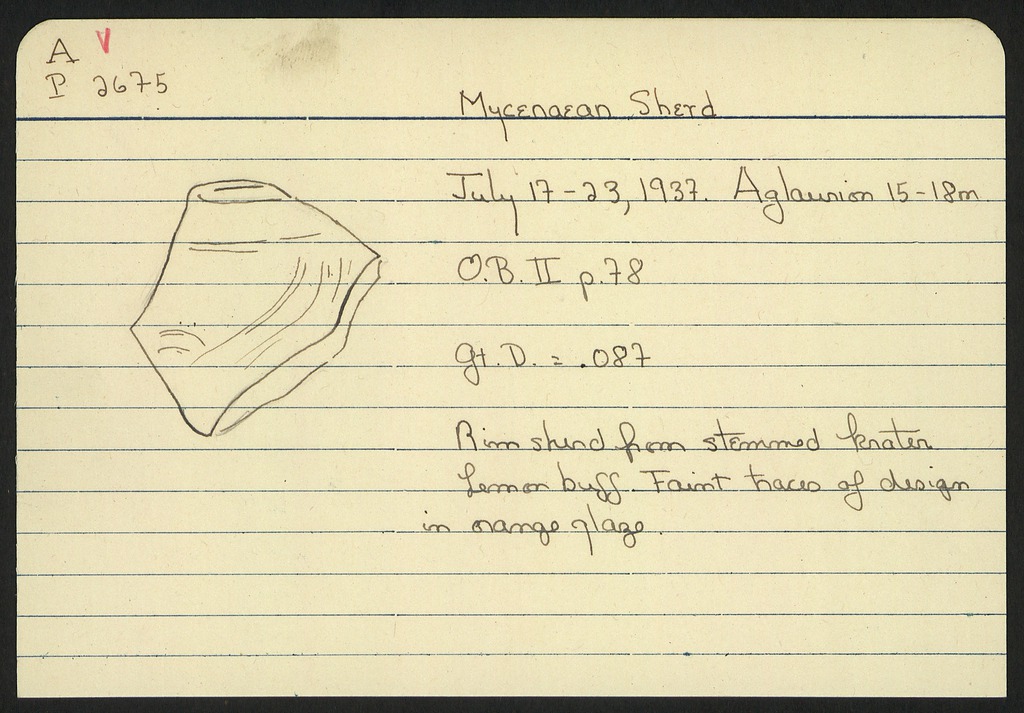 A V
P 2675
Mycenaean Sherd
July 17-23, 1937. Aglaurion 15-18m
O.B. II p.78
Gt. D. = .087
Rim sherd from stemmed krater
Lemon buff. Faint traces of design
in orange glaze.